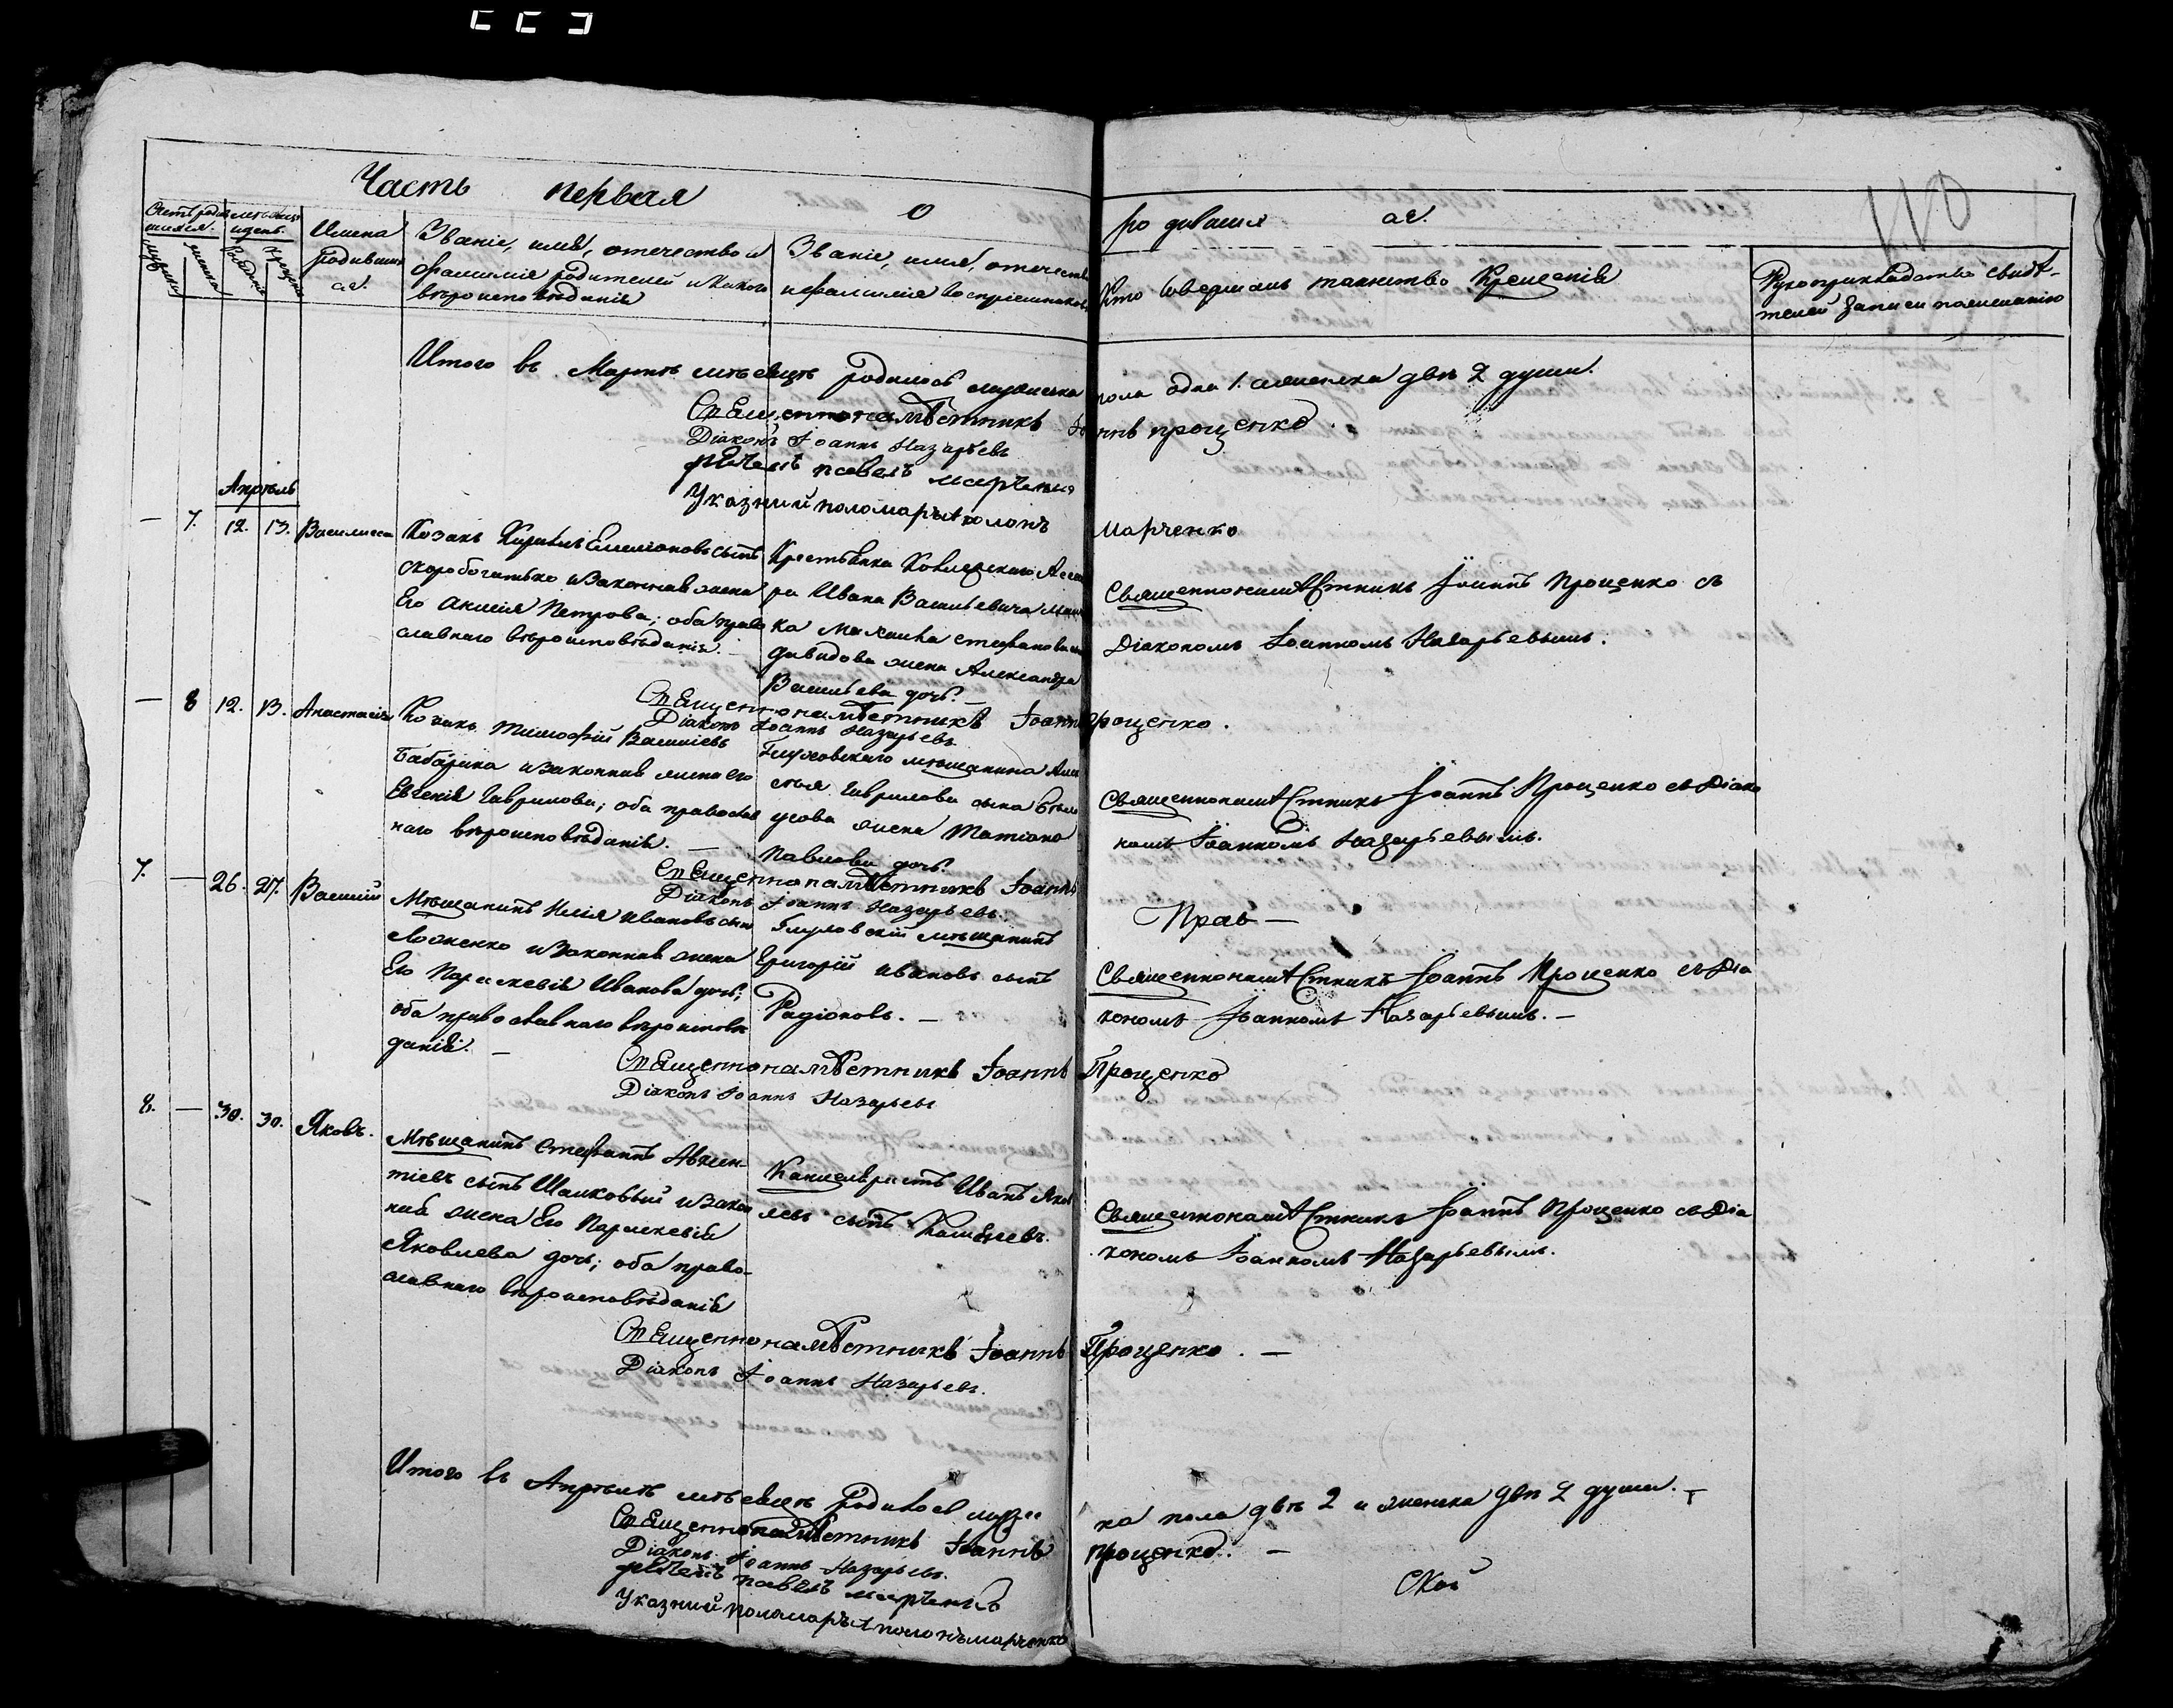 Часть первая о родившихся.
110
Счетъ родившихся.
мужеска
женска
месяцъ и день.
рожденія
крещенія
Имена родившихся.
Званіе, имя, отечество и
фамилія родителей и какого
вероисповеданія
Званіе, имя, отечество
и фамилія воспріемниковъ
Кто совершалъ таинство Крещенія
Рукоприкладство свиде-
телей записи по желанію
Итого въ Марте месяце родилось мужеска пола одна 1. женска две 2 души.
Священнонаместникъ Іоаннъ проценко.
Діаконъ Іоаннъ Назарьевъ
павелъ марченко
Указний поломарь марченко
Апрель
— 7. 12. 13. Василисса
Козакъ Кирилъ Емеліановъ сынъ
Скоробогатько и законная жена
Его Акилія Петрова; оба право
славнаго вероисповеданія —
Крестьянка
ра Ивана Васильевича
ка
давидова жена Александра
Васильева дочь. —
Священнонаместникъ Іоаннъ Проценко съ
Діакономъ Іоанномъ Назарьевымъ.
Священнонаместникъ Іоаннъ Проценко.
Діаконъ Іоаннъ Назарьевъ
— 8 12. 13. Анастасія
Козакъ Тимофій Васильевъ
Бабарика и законная жена его
Евгенія Гаврилова; оба православ
наго вероисповеданія. —
Глуховскаго мещанина
Гаврилова сына
жена Татіана
Павлова дочь.
Священнонаместникъ Іоаннъ Проценко съ Діако
номъ Іоанномъ Назарьевымъ.
Священнонаместникъ Іоаннъ
Діаконъ Іоаннъ Назарьевъ.
Прав —
7. — 26. 27. Василій
Мещанинъ Илія Ивановъ сынъ
Ложенко и законная жена
Его Параскевія Иванова дочь;
оба православнаго вероиспове
данія. —
Глуховскій мещанинъ
Григорій Ивановъ сынъ
Радіоновъ. —
Священнонаместникъ Іоаннъ Проценко съ Діа
кономъ Іоанномъ Назарьевымъ. —
Священнонаместникъ Іоаннъ Проценко
Діаконъ Іоаннъ Назарьевъ
8. — 30. 30. Яковъ.
Мещанинъ Стефанъ Авксен-
тіевъ сынъ и закон
ная жена Его Параскевія
Яковлева дочь; оба право-
славнаго вероисповеданія
Канцеляристъ Иванъ Яков
левъ сынъ
Священнонаместникъ Іоаннъ Проценко съ Діа
кономъ Іоанномъ Назарьевымъ.
Священнонаместникъ Іоаннъ Проценко. —
Діаконъ Іоаннъ Назарьевъ.
Итого въ Апреле месяце родилося мужес
ка пола две 2 и женска две 2 души. —
Священнонаместникъ Іоаннъ проценко. —
Діаконъ Іоаннъ Назарьевъ.
павелъ марченко
Указний поломарь марченко
Ской